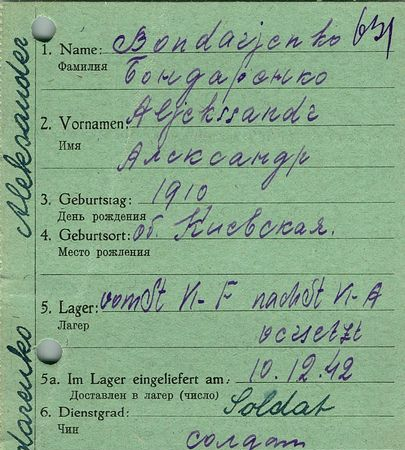 Aleksander
darenko
1. Name: Bondarjenko
Фамилия Бондаренко
2. Vornamen: Aljekssandr
Имя Александр
3. Geburtstag: 1910
День рождения
4. Geburtsort: об. Киевская.
Место рождения
5. Lager: vom St VI-F nach St VI-A
Лагер versetzt
5a. Im Lager eingeliefert am: 10.12.42
Доставлен в лагер (число)
6. Dienstgrad: Soldat
Чин солдат